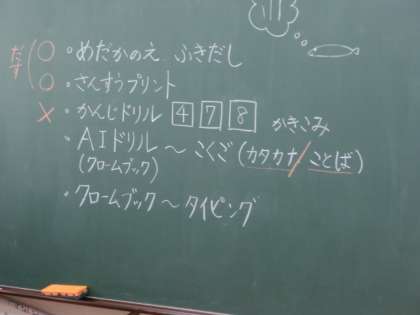 だす
○・めだかのえ ふきだし
○・さんすうプリント
×・かんじドリル 4 7 8 かきこみ
・AIドリル～こくご(カタカナ/ことば)
(クロームブック)
・クロームブック～タイピング